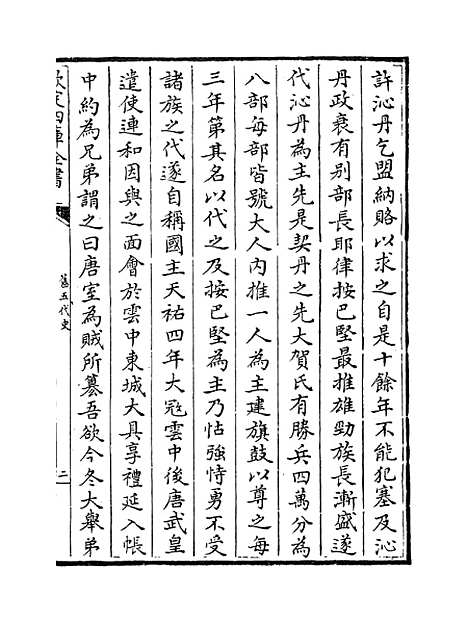 許沁丹乞盟納賂以求之自是十餘年不能犯塞及沁
丹政衰有别部長耶律按巴堅最推雄勁族長漸盛遂
代沁丹為主先是契丹之先大賀氏有勝兵四萬分為
八部每部皆號大人内推一人為主建旗鼓以尊之每
三年第其名以代之及按巴堅為主乃怙強恃勇不受
諸族之代遂自稱國主天祐四年大寇雲中後唐武皇
遣使連和因與之面會於雲中東城大具享禮延入帳
中約為兄弟謂之曰唐室為賊所簒吾欲今冬大舉弟
欽定四庫全書
舊五代史
二